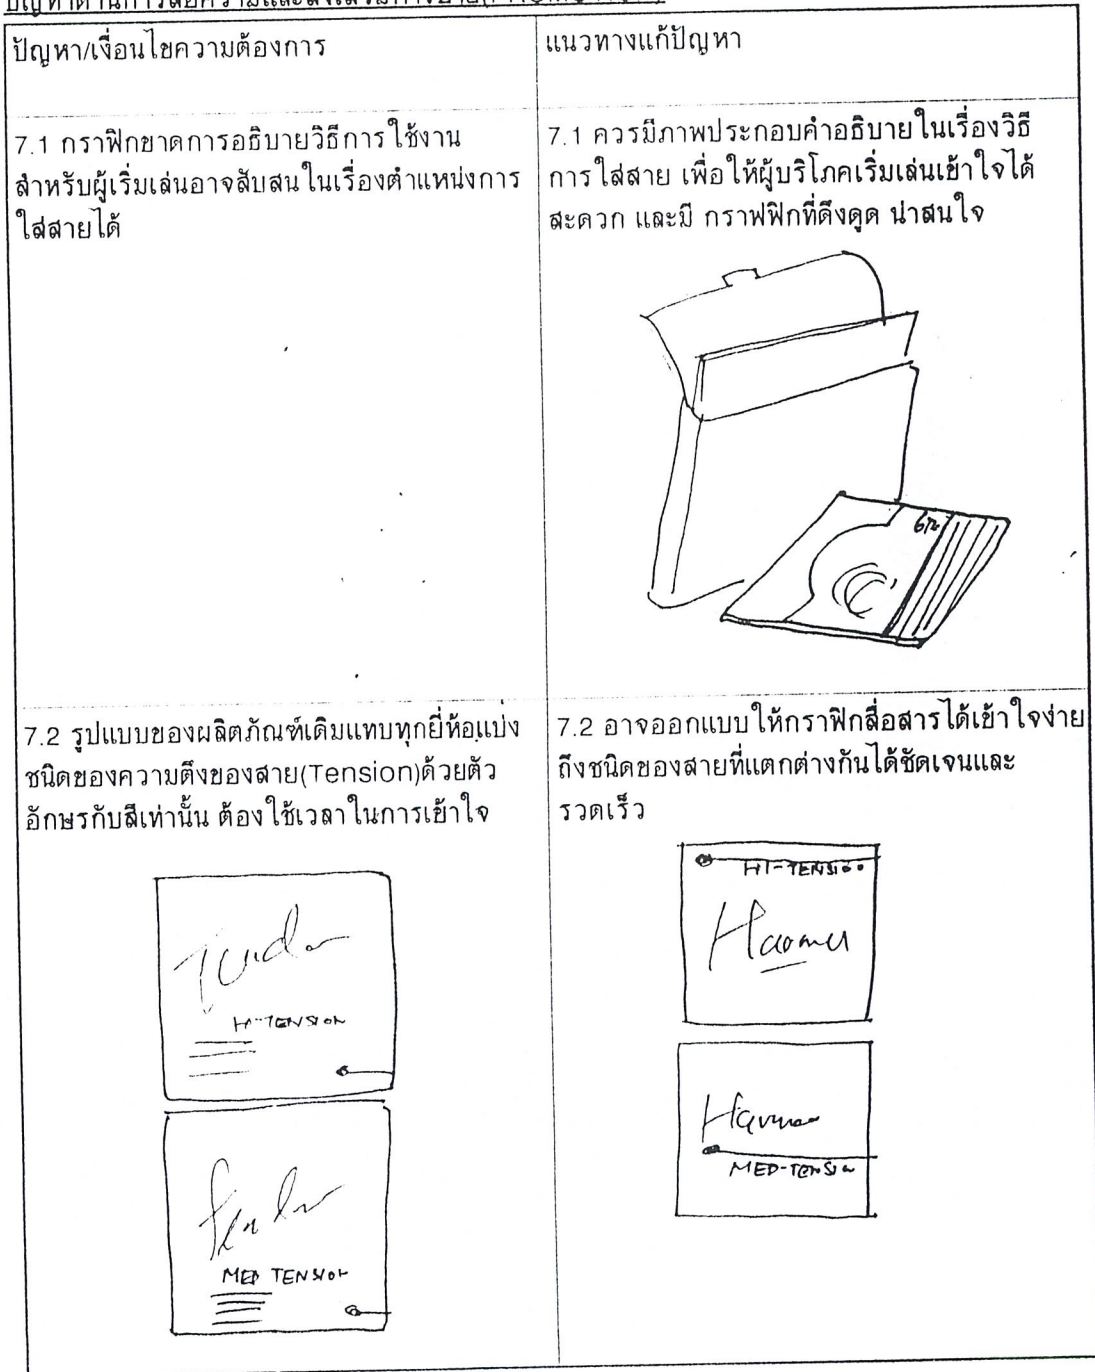 ปัญหา/เงื่อนไขความต้องการ
แนวทางแก้ปัญหา
7.1 กราฟิกขาดการอธิบายวิธีการใช้งาน
สำหรับผู้เริ่มเล่นอาจสับสนในเรื่องตำแหน่งการ
ใส่สายได้
7.1 ควรมีภาพประกอบคำอธิบายในเรื่องวิธี
การใส่สาย เพื่อให้ผู้บริโภคเริ่มเล่นเข้าใจได้
สะดวก และมี กราฟฟิกที่ดึงดูด น่าสนใจ
7.2 รูปแบบของผลิตภัณฑ์เดิมแทบทุกยี่ห้อแบ่ง
ชนิดของความตึงของสาย(Tension)ด้วยตัว
อักษรกับสีเท่านั้น ต้องใช้เวลาในการเข้าใจ
HI-TENSION
MED TENSION
7.2 อาจออกแบบให้กราฟิกสื่อสารได้เข้าใจง่าย
ถึงชนิดของสายที่แตกต่างกันได้ชัดเจนและ
รวดเร็ว
HI-TENSION
MED-TENSION